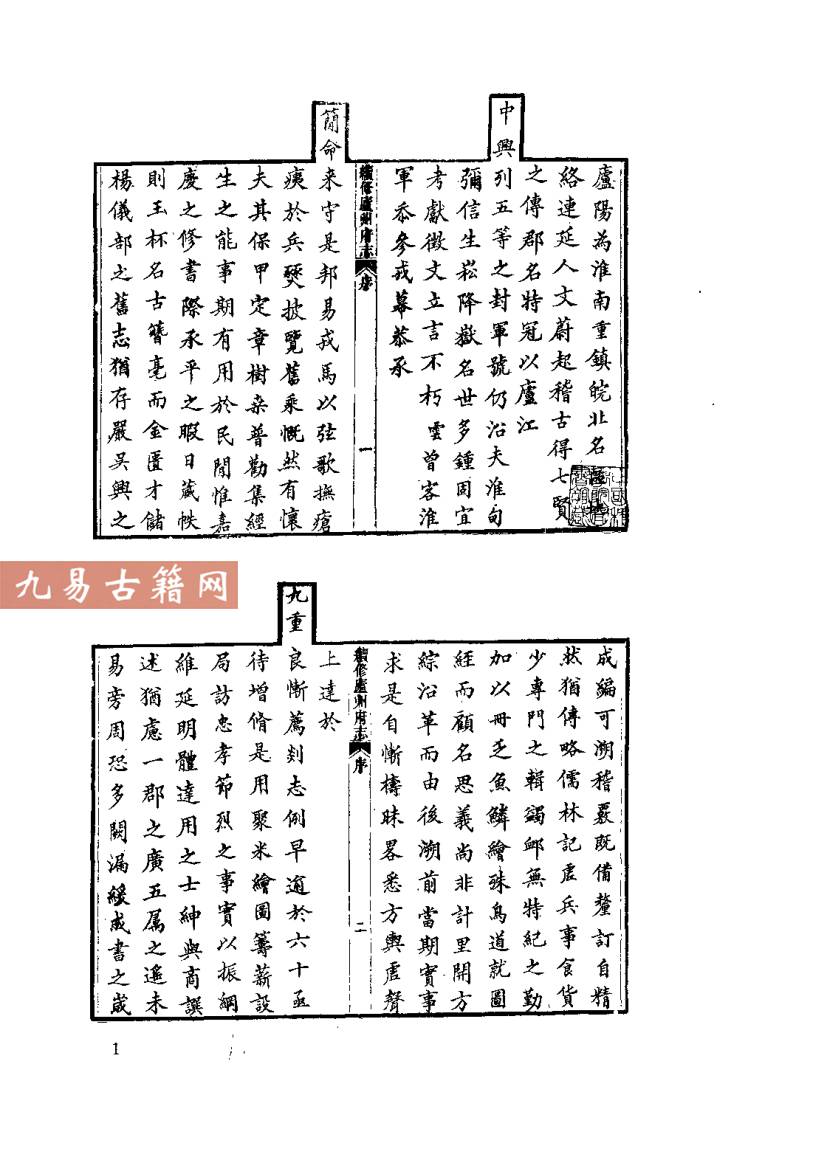 廬陽為淮南重鎮皖北名
絡連延人文蔚起稽古得七賢
之傳郡名特冠以廬江
中興列五等之封軍號仍沿夫淮甸
彌信生崧降嶽名世多鍾固宜
考獻徵文立言不朽雲曾客淮
軍忝參戎幕恭承
續修廬州府志 序 一
簡命来守是邦易戎馬以弦歌撫瘡
痍於兵燹披覽舊乘慨然有懷
夫其保甲定章樹桑普勸集經
生之能事期有用於民間惟嘉
慶之修書際承平之暇日蕆帙
則玉杯名古簪毫而金匱才儲
楊儀部之舊志猶存嚴吳興之
九易古籍网
成編可溯稽覈既備釐訂自精
然猶傳略儒林記虛兵事食貨
少專門之輯蠲卹無特紀之勤
加以冊乏魚鱗繪殊鳥道就圖
經而顧名思義尚非計里開方
綜沿革而由後溯前當期實事
求是自慚檮昧畧悉方輿虛聲
續修廬州府志 序 二
上達於
九重良慚薦剡志例早逾於六十亟
待增脩是用聚米繪圖籌薪設
局訪忠孝節烈之事實以振綱
維延明體達用之士紳與商譔
述猶慮一郡之廣五属之遥未
易旁周恐多闕漏緩成書之歲
1